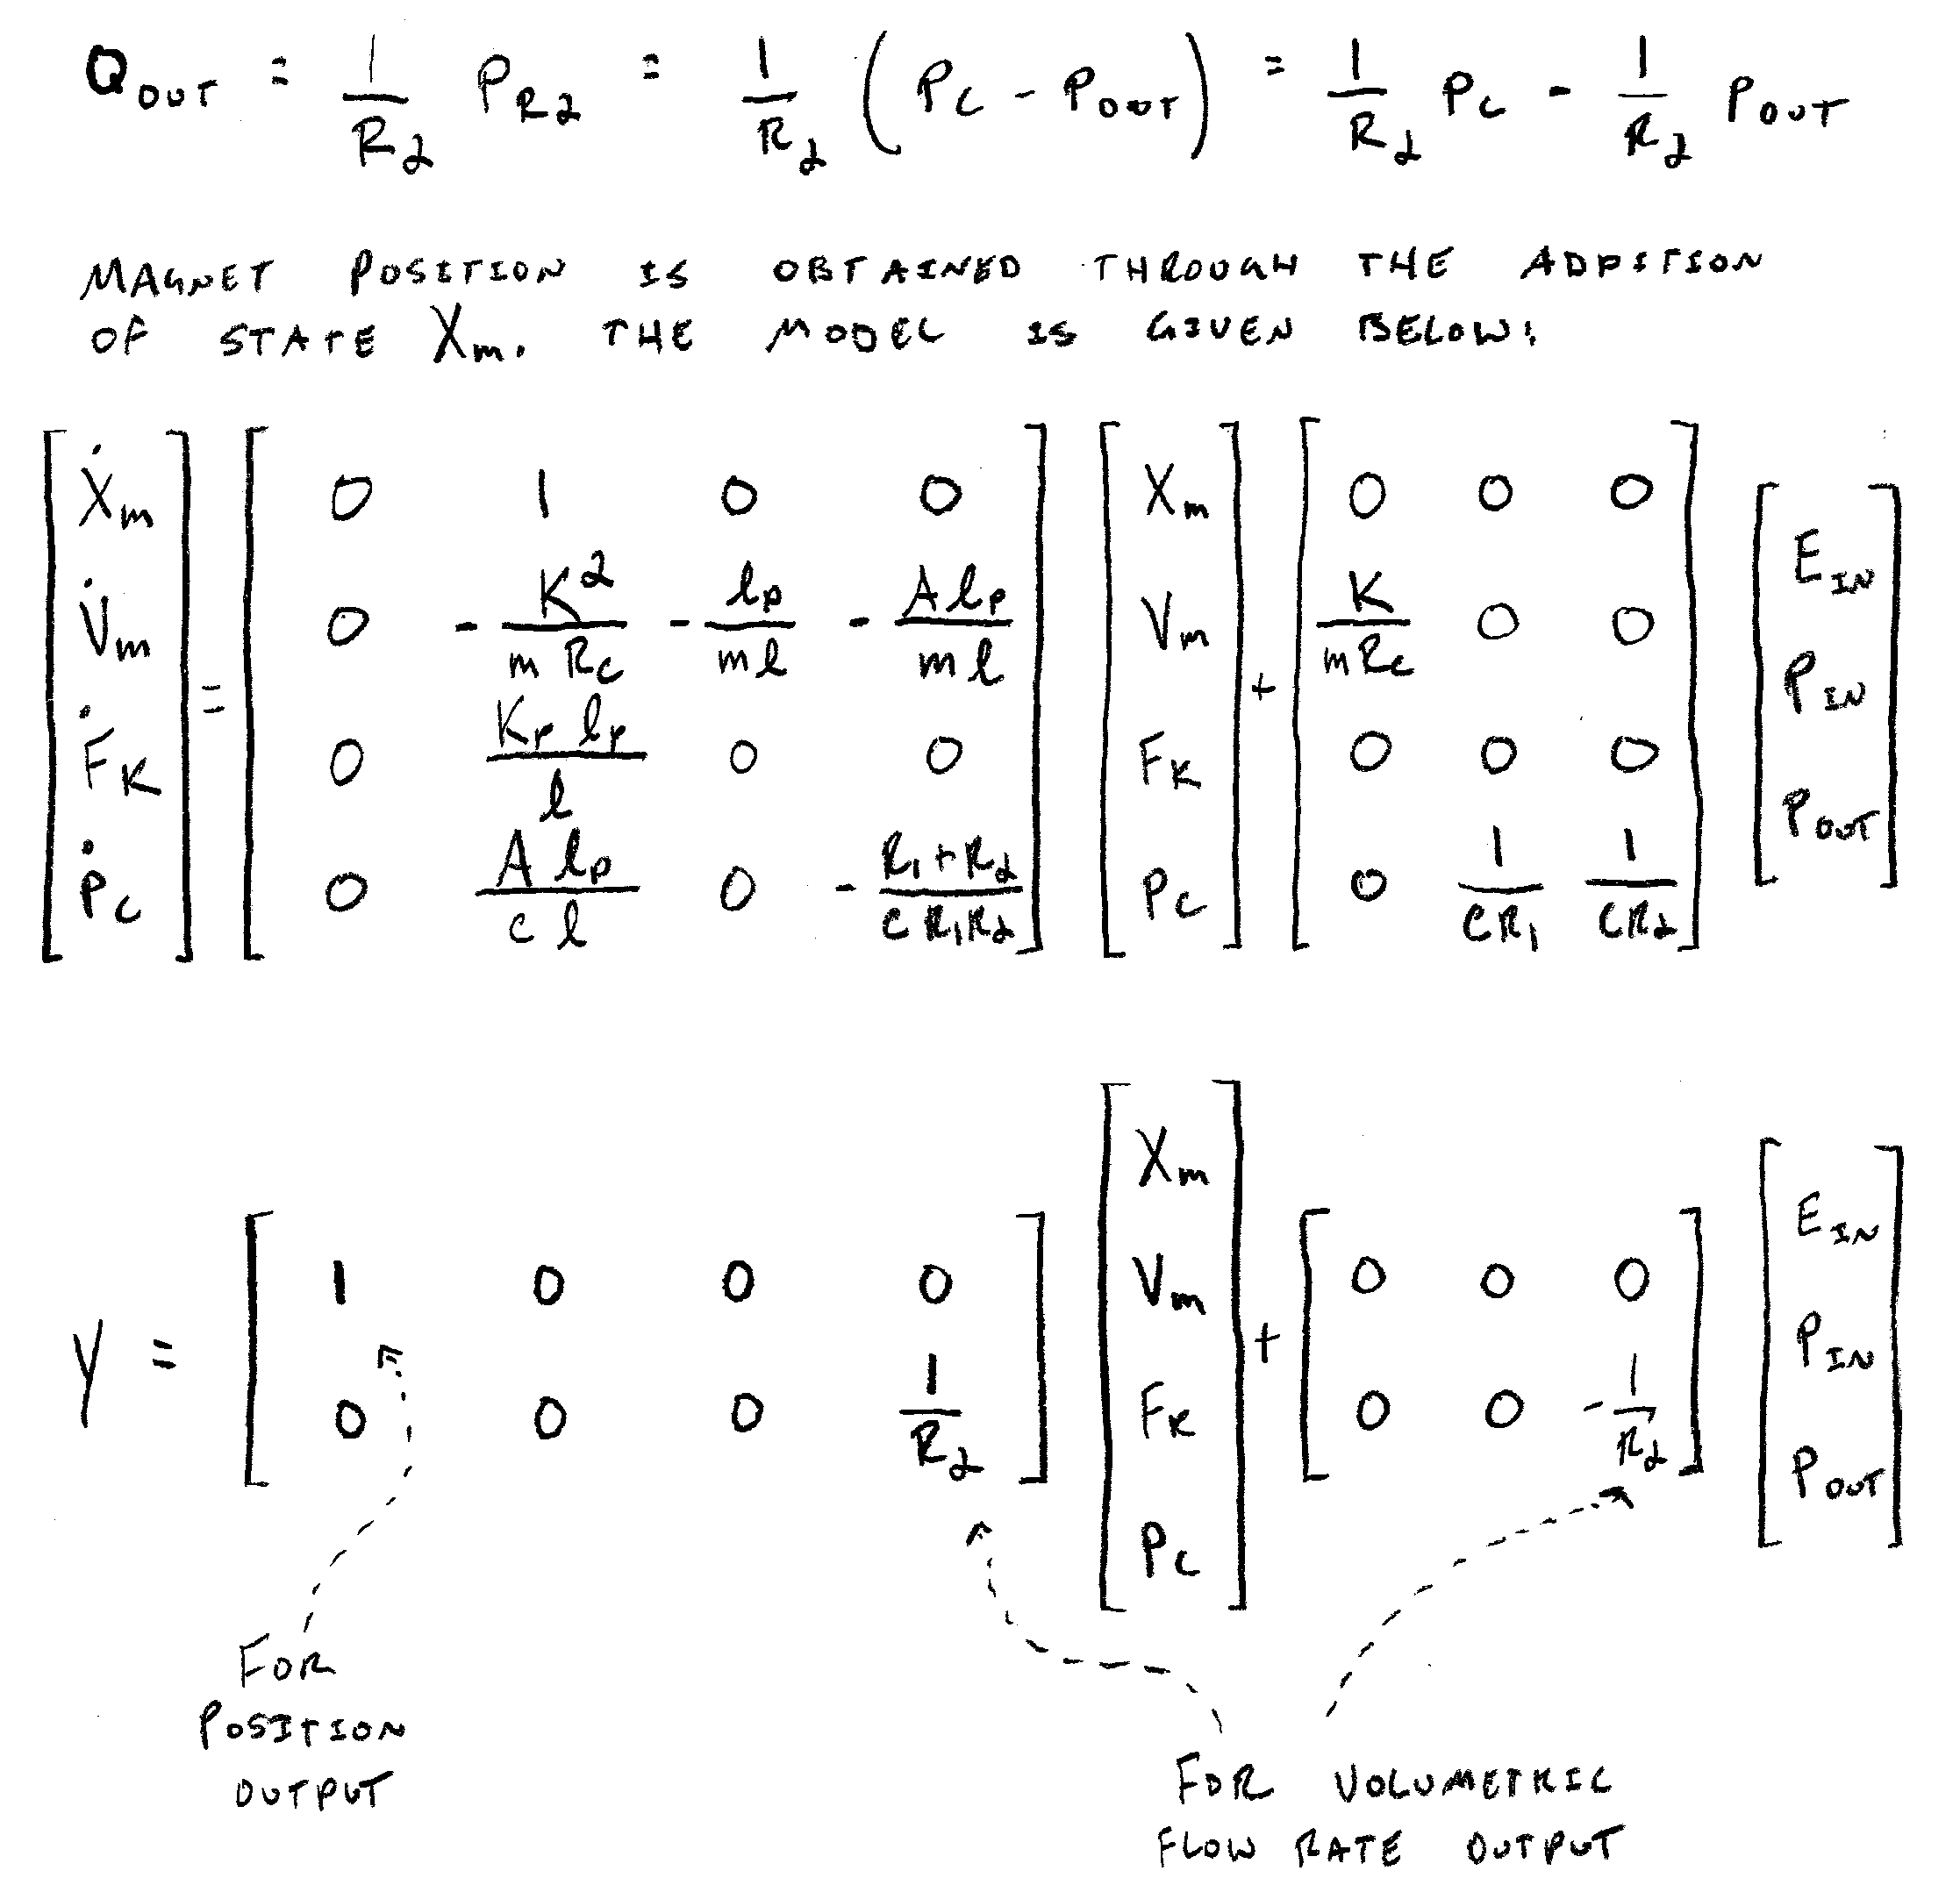 Q_OUT = 1/R_2 P_R2 = 1/R_2 (P_C - P_OUT) = 1/R_2 P_C - 1/R_2 P_OUT
MAGNET POSITION IS OBTAINED THROUGH THE ADDITION
OF STATE X_m. THE MODEL IS GIVEN BELOW:
[Ẋ_m; V̇_m; Ḟ_K; Ṗ_C] = [0 1 0 0; 0 -K^2/(m R_C) -l_p/(m l) -A l_p/(m l); 0 K_p l_p/l 0 0; 0 A l_p/(C l) 0 -(R_1+R_2)/(C R_1 R_2)] [X_m; V_m; F_K; P_C] + [0 0 0; K/(m R_C) 0 0; 0 0 0; 0 1/(C R_1) 1/(C R_2)] [E_IN; P_IN; P_OUT]
Y = [1 0 0 0; 0 0 0 1/R_2] [X_m; V_m; F_K; P_C] + [0 0 0; 0 0 -1/R_2] [E_IN; P_IN; P_OUT]
FOR
POSITION
OUTPUT
FOR VOLUMETRIC
FLOW RATE OUTPUT